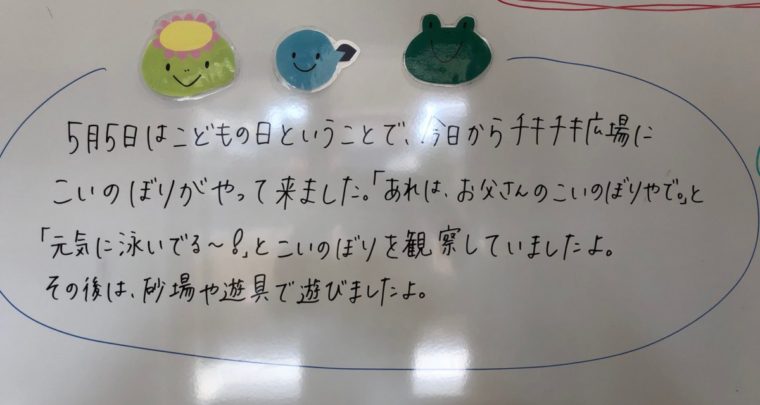 5月5日はこどもの日ということで、今日からチキチキ広場に
こいのぼりがやって来ました。「あれは、お父さんのこいのぼりやで。」と
「元気に泳いでる〜!」とこいのぼりを観察していましたよ。
その後は、砂場や遊具で遊びましたよ。